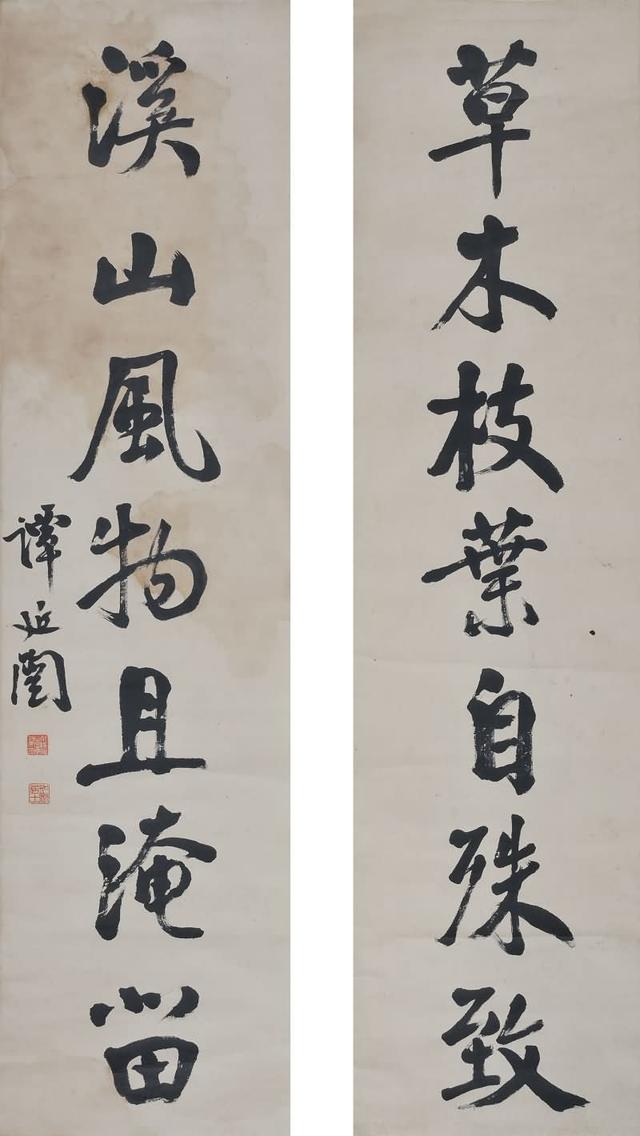 草木枝葉自殊致
溪山風物且淹畱
譚延闓